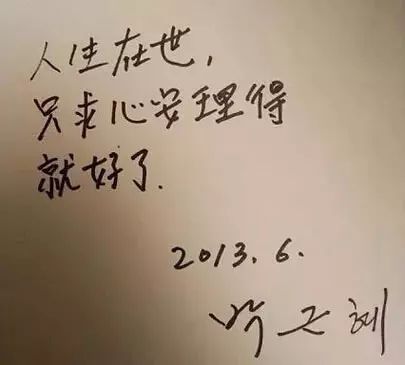 人生在世,
只求心安理得
就好了.
2013.6.
박근혜